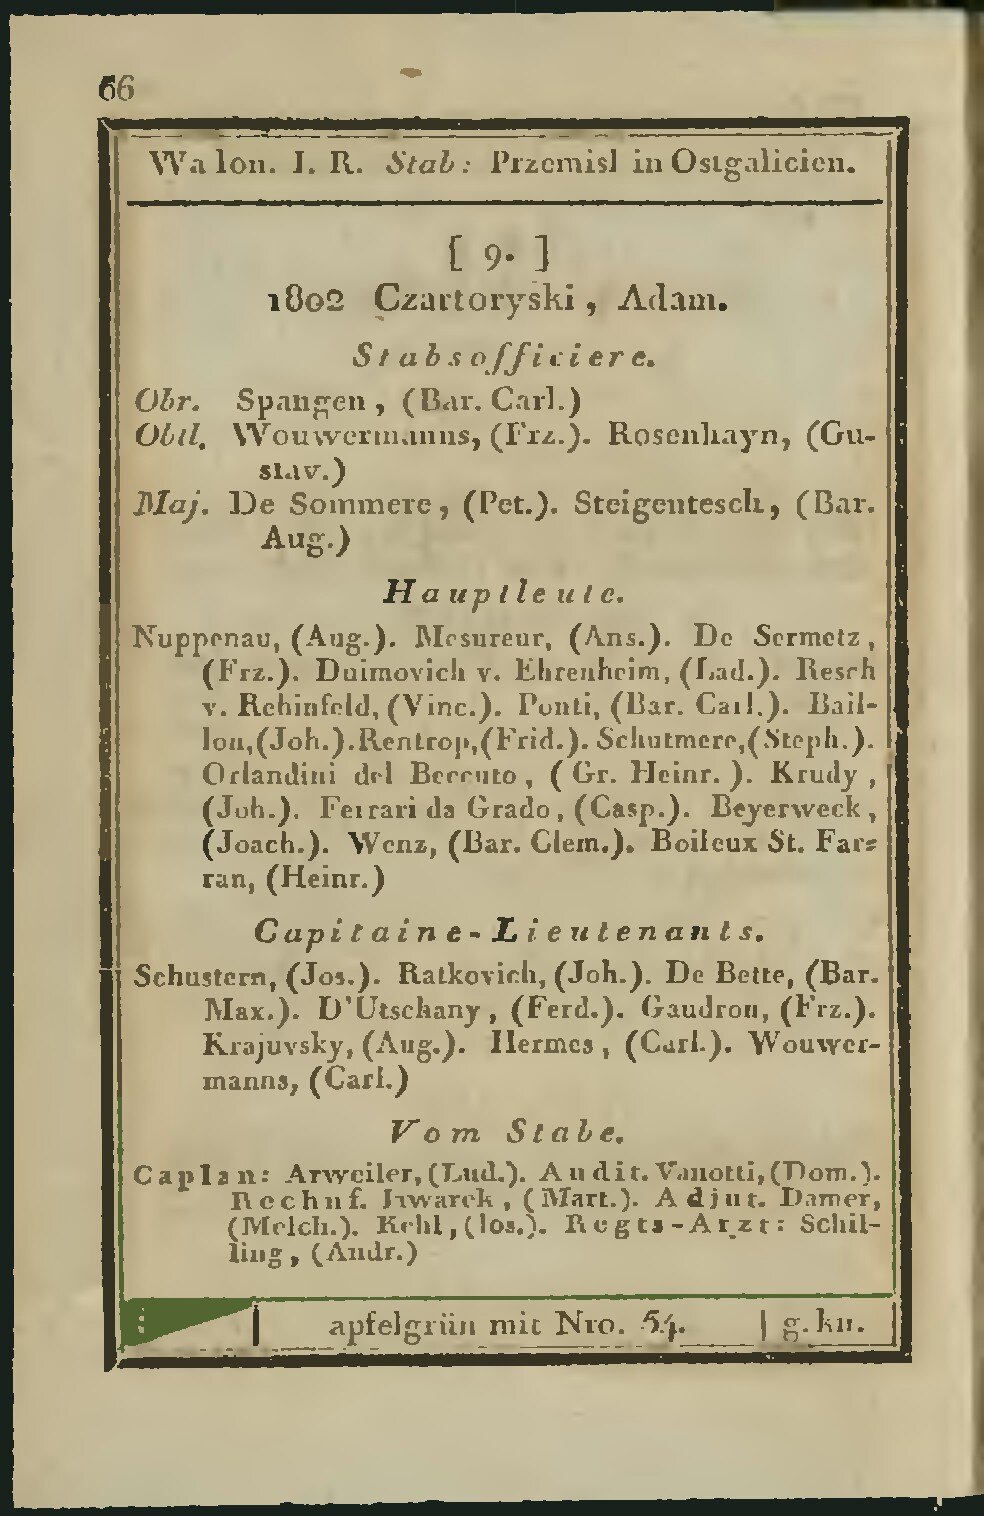 66
Walon. I. R. Stab: Przemisl in Ostgalicien.
[ 9. ]
1802 Czartoryski, Adam.
Stabsofficiere.
Obr. Spangen, (Bar. Carl.)
Obtl. Wouwermanns, (Frz.). Rosenhayn, (Gu-
stav.)
Maj. De Sommere, (Pet.). Steigentesch, (Bar.
Aug.)
Hauptleute.
Nuppenau, (Aug.). Mesureur, (Ans.). De Sermetz,
(Frz.). Duimovich v. Ehrenheim, (Lad.). Resch
v. Rehinfeld, (Vinc.). Ponti, (Bar. Carl.). Bail-
lou, (Joh.). Rentrop, (Frid.). Schutmere, (Steph.).
Orlandini del Beccuto, (Gr. Heinr.). Krudy,
(Joh.). Ferrari da Grado, (Casp.). Beyerweck,
(Joach.). Wenz, (Bar. Clem.). Boileux St. Far-
ran, (Heinr.)
Capitaine-Lieutenants.
Schustern, (Jos.). Ratkovich, (Joh.). De Bette, (Bar.
Max.). D'Utschany, (Ferd.). Gaudron, (Frz.).
Krajuvsky, (Aug.). Hermes, (Carl.). Wouwer-
manns, (Carl.)
Vom Stabe.
Caplan: Arweiler, (Lud.). Audit. Vanotti, (Dom.).
Rechnf. Jawarek, (Mart.). Adjut. Damer,
(Melch.). Kehl, (Ios.). Regts-Arzt: Schil-
ling, (Andr.)
apfelgrün mit Nro. 54. | g. kn.